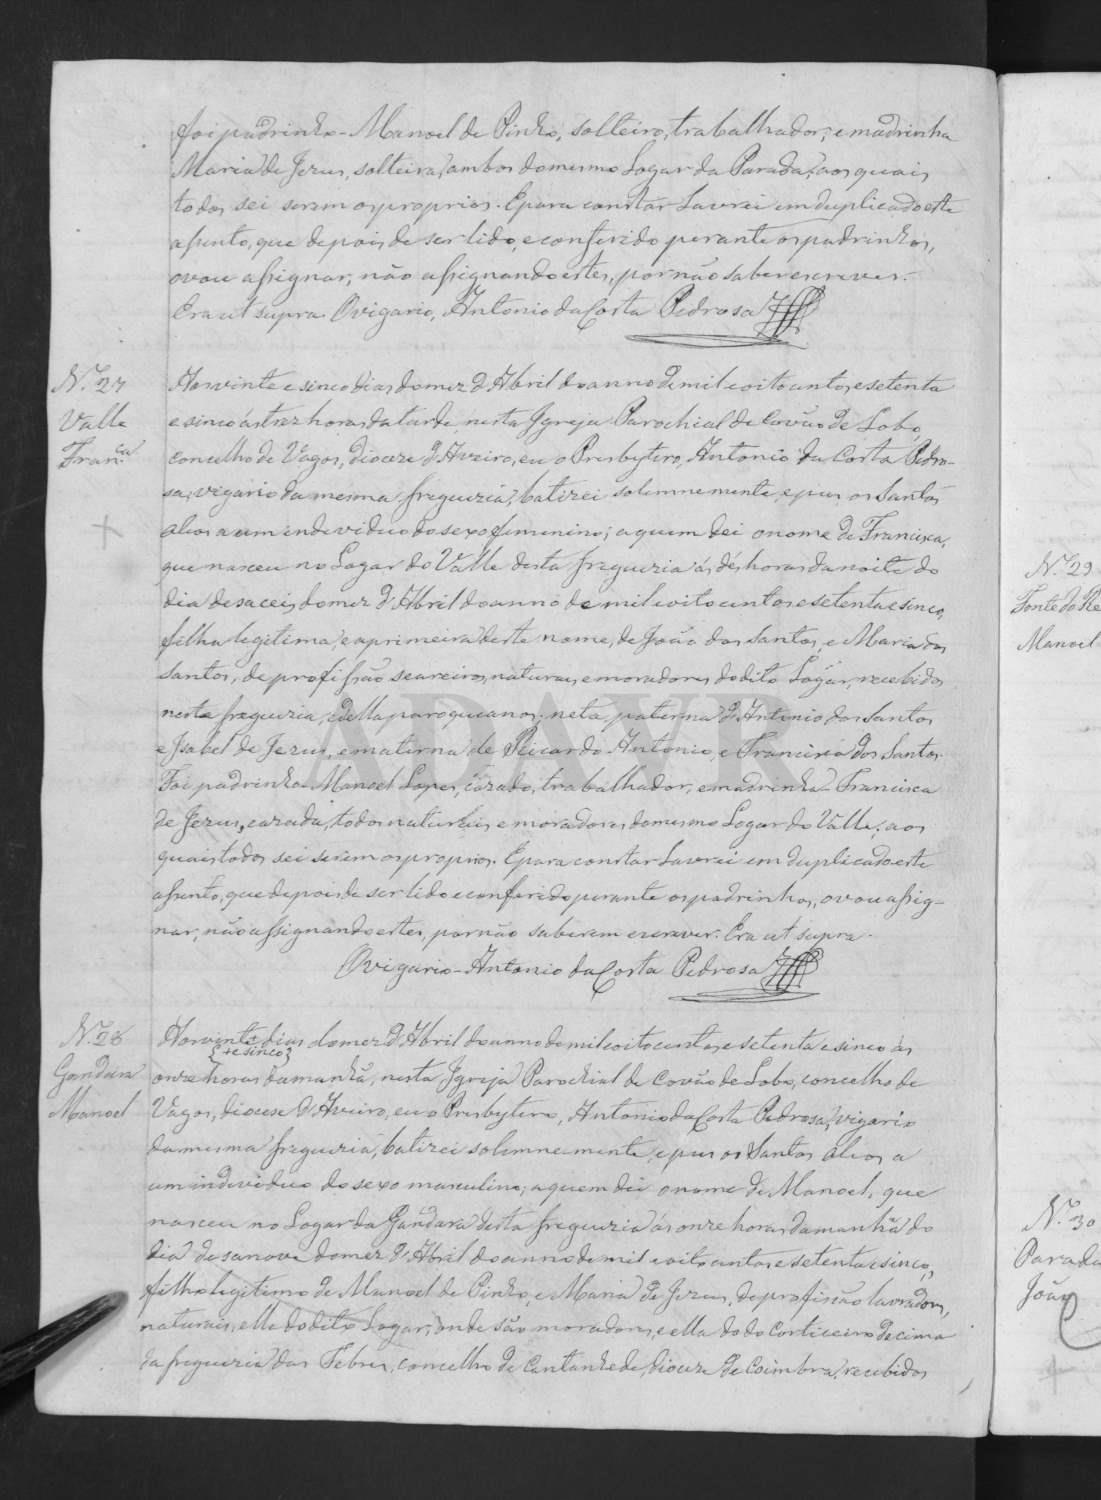 foi padrinho - Manoel de Pinho, solteiro, trabalhador, e madrinha
Maria de Jezus, solteira, ambos do mesmo Logar da Parada, aos quais
todos sei serem os proprios. E para constar Lavrei em duplicado este
assento, que depois de ser lido, e conferido perante os padrinhos,
o vou assignar, não assignando estes, por não saber escrever.
Era ut supra O vigario, Antonio da Costa Pedrosa
N.º 27
Valle
Fran.ca
Aos vinte e sinco dias do mez d'Abril do anno de mil e oito centos e setenta
e sinco ás trez horas da tarde, nesta Igreja Parochial de Covão de Lobo,
concelho de Vagos, diocese d'Aveiro, eu o Presbytero, Antonio da Costa Pedro-
sa, vigario da mesma freguezia, batizei solemnemente, e pus os Santos
oleos a um individuo do sexo femenino; a quem dei o nome de Francisca,
que nasceu no Logar do Valle desta freguezia ás dés horas da noite do
dia desaceis do mez d'Abril do anno de mil e oito centos e setenta e sinco,
filha legitima, e a primeira deste nome, de João dos Santos, e Maria dos
Santos, de profissão seareiros, naturais e moradores do dito Logar, recebidos
nesta freguezia, e della paroquianos; neta paterna d'Antonio dos Santos
e Isabel de Jezus, e materna de Ricardo Antonio, e Francisca dos Santos.
Foi padrinho - Manoel Lopes, cazado, trabalhador, e madrinha - Francisca
de Jezus, cazada, todos naturais e moradores do mesmo Logar do Valle, aos
quais todos sei serem os proprios. E para constar Lavrei em duplicado este
assento, que depois de ser lido e conferido perante os padrinhos, o vou assig-
nar, não assignando estes, por não saberem escrever. Era ut supra.
O vigario - Antonio da Costa Pedrosa
N.º 28
Gandara
Manoel
Aos vinte dias do mez d'Abril do anno de mil e oito centos e setenta e sinco ás
{+e sinco}
onze horas da manhã, nesta Igreja Parochial de Covão de Lobo, concelho de
Vagos, diocese d'Aveiro, eu o Presbytero, Antonio da Costa Pedrosa, vigario
da mesma freguezia, batizei solemnemente, e pus os Santos oleos a
um individuo do sexo masculino; a quem dei o nome de Manoel, que
nasceu no Logar da Gandara desta freguezia ás onze horas da manhã do
dia desanove do mez d'Abril do anno de mil e oito centos e setenta e sinco,
filho legitimo de Manoel de Pinho, e Maria de Jezus, de profissão lavradores,
naturais, elle do dito Logar, onde são moradores, e ella do do Corticeiro de cima
da freguezia das Febres, concelho de Cantanhede, diocese de Coimbra, recebidos
N.º 29
Fonte do
Manoel
N.º 30
Parada
João
ADAVR